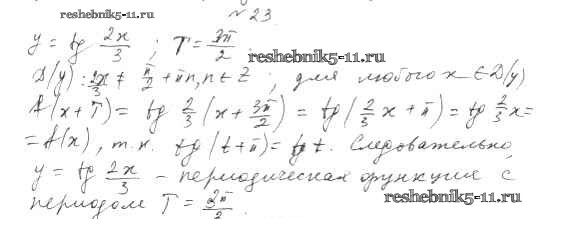 reshebnik5-11.ru
№ 23
y = tg 2x/3 ; T = 3π/2
reshebnik5-11.ru
D(y): 2x/3 ≠ π/2 + πn, n ∈ Z ; для любого x ∈ D(y)
f(x+T) = tg 2/3 (x + 3π/2) = tg (2/3 x + π) = tg 2/3 x =
= f(x), т.к. tg (t+π) = tg t. Следовательно,
y = tg 2x/3 – периодическая функция с
периодом T = 3π/2.
reshebnik5-11.ru